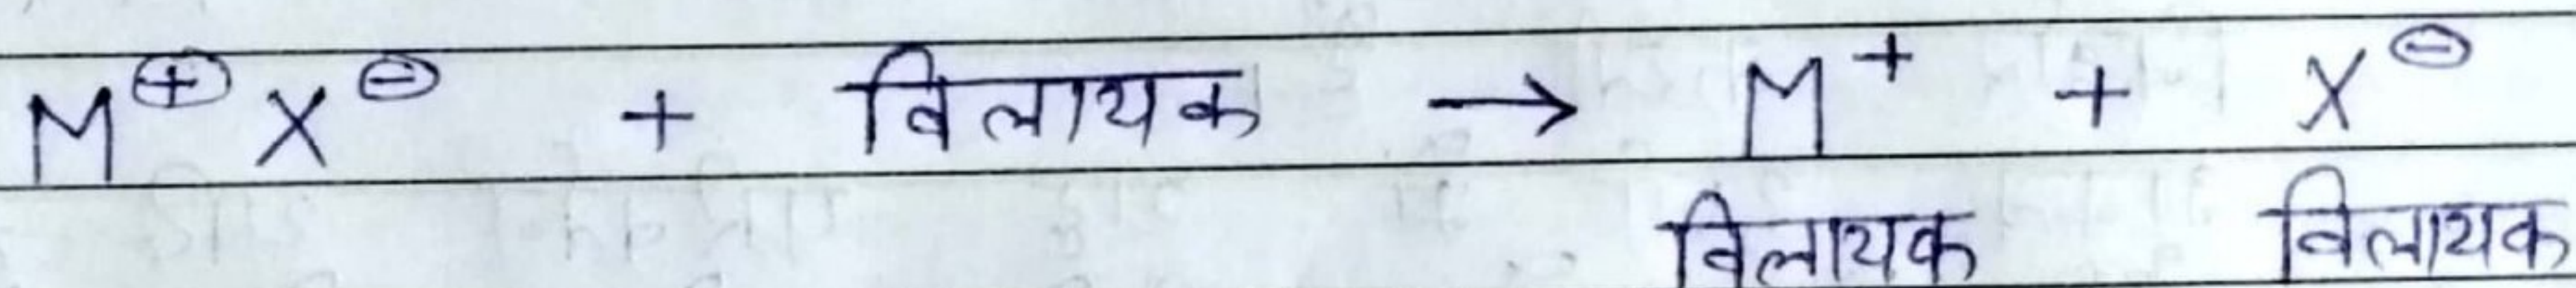 M⊕ X⊖ + विलायक → M⁺ + X⊖
विलायक विलायक